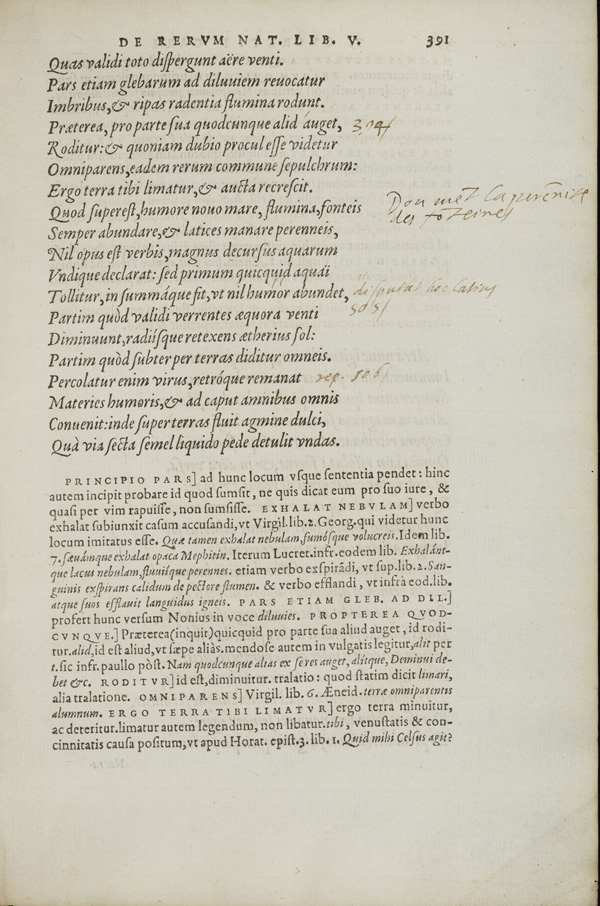 DE RERVM NAT. LIB. V. 391
Quas validi toto dispergunt aëre venti.
Pars etiam glebarum ad diluuiem reuocatur
Imbribus,& ripas radentia flumina rodunt.
Præterea, pro parte sua quodcunque alid auget,
Roditur:& quoniam dubio procul esse videtur
Omniparens,eadem rerum commune sepulchrum:
Ergo terra tibi limatur,& aucta recrescit.
Quod superest,humore nouo mare, flumina,fonteis
Don
des
Semper abundare,& latices manare perenneis,
Nil opus est verbis,magnus decursus aquarum
Vndique declarat: sed primum quicquid aquäi
Tollitur,in summáque fit,vt nil humor abundet,
Partim quòd validi verrentes æquora venti
5051
Diminuunt,radiísque retexens ætherius sol:
Partim quòd subter per terras diditur omneis.
Percolatur enim virus,retróque remanat rep. 506
Materies humoris,& ad caput amnibus omnis
Conuenit:inde super terras fluit agmine dulci,
Quà via secta semel liquido pede detulit vndas.
PRINCIPIO PARS] ad hunc locum vsque sententia pendet: hinc
autem incipit probare id quod sumsit, ne quis dicat eum pro suo iure, &
quasi per vim rapuisse, non sumsisse. EXHALAT NEBVLAM] verbo
exhalat subiunxit casum accusandi,vt Virgil.lib.2.Georg.qui videtur hunc
locum imitatus esse. Quæ tamen exhalat nebulam,fumósque volucreis.Idem lib.
7.sæuámque exhalat opaca Mephitin. Iterum Lucret.infr.eodem lib. Exhalánt-
que lacus nebulam,fluuiísque perennes. etiam verbo exspirādi, vt sup.lib.2.San-
guinis exspirans calidum de pectore flumen. & verbo efflandi, vt infrà eod.lib.
atque suos efflauit languidus igneis. PARS ETIAM GLEB. AD DIL.]
profert hunc versum Nonius in voce diluuies. PROPTEREA QVOD-
CVNQVE.] Præterea(inquit)quicquid pro parte sua aliud auget, id rodi-
tur.alid,id est aliud,vt sæpe aliàs.mendose autem in vulgatis legitur,alit per
t.sic infr.paullo pòst. Nam quodcunque alias ex se res auget, alitque, Deminui de-
bet &c. RODITVR] id est,diminuitur. tralatio: quod statim dicit limari,
alia tralatione. OMNIPARENS] Virgil. lib. 6. Æneid.terræ omniparentis
alumnum. ERGO TERRA TIBI LIMATVR] ergo terra minuitur,
ac deteritur.limatur autem legendum, non libatur.tibi, venustatis & con-
cinnitatis causa positum,vt apud Horat. epist.3. lib. 1. Quid mihi Celsus agit?